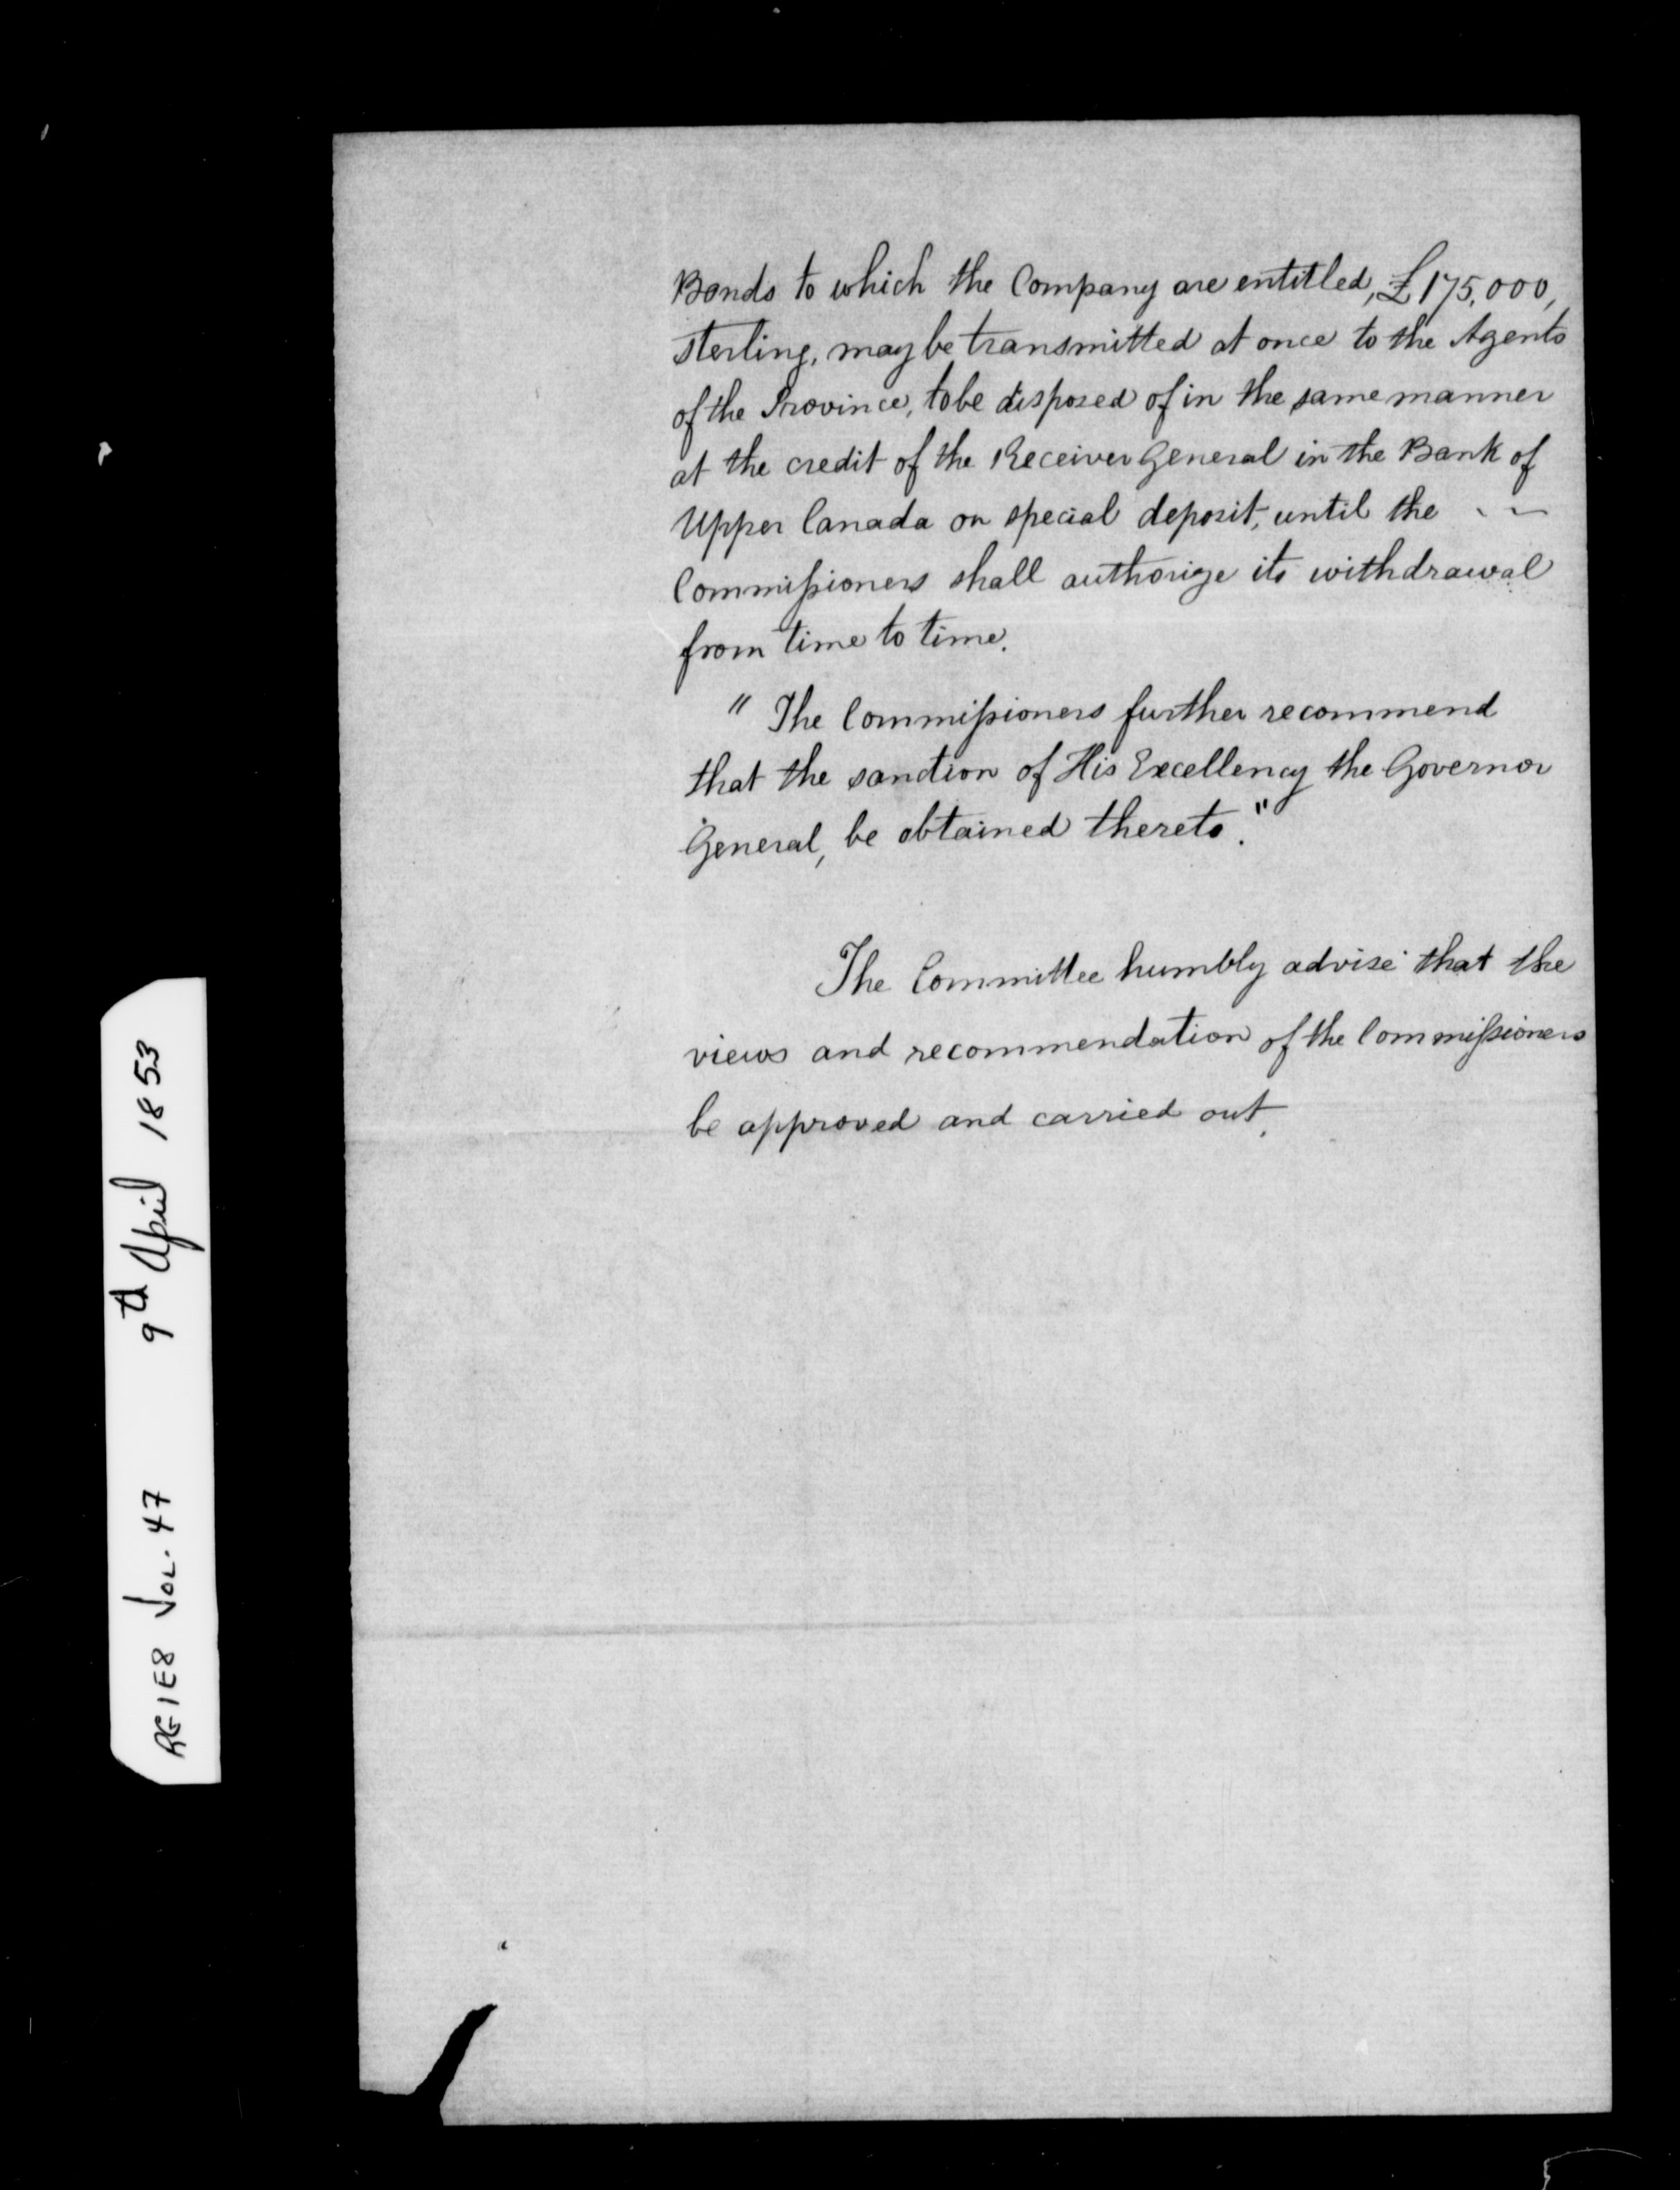 Bonds to which the Company are entitled, £175,000,
sterling, may be transmitted at once to the Agents
of the Province, to be disposed of in the same manner
at the credit of the Receiver General in the Bank of
Upper Canada on special deposit, until the - -
Commiſsioners shall authorize its withdrawal
from time to time.
" The Commiſsioners further recommend
that the sanction of His Excellency the Governor
General, be obtained thereto."
The Committee humbly advise that the
views and recommendation of the Commiſsioners
be approved and carried out.
RG1E8 VOL. 47 9th April 1853